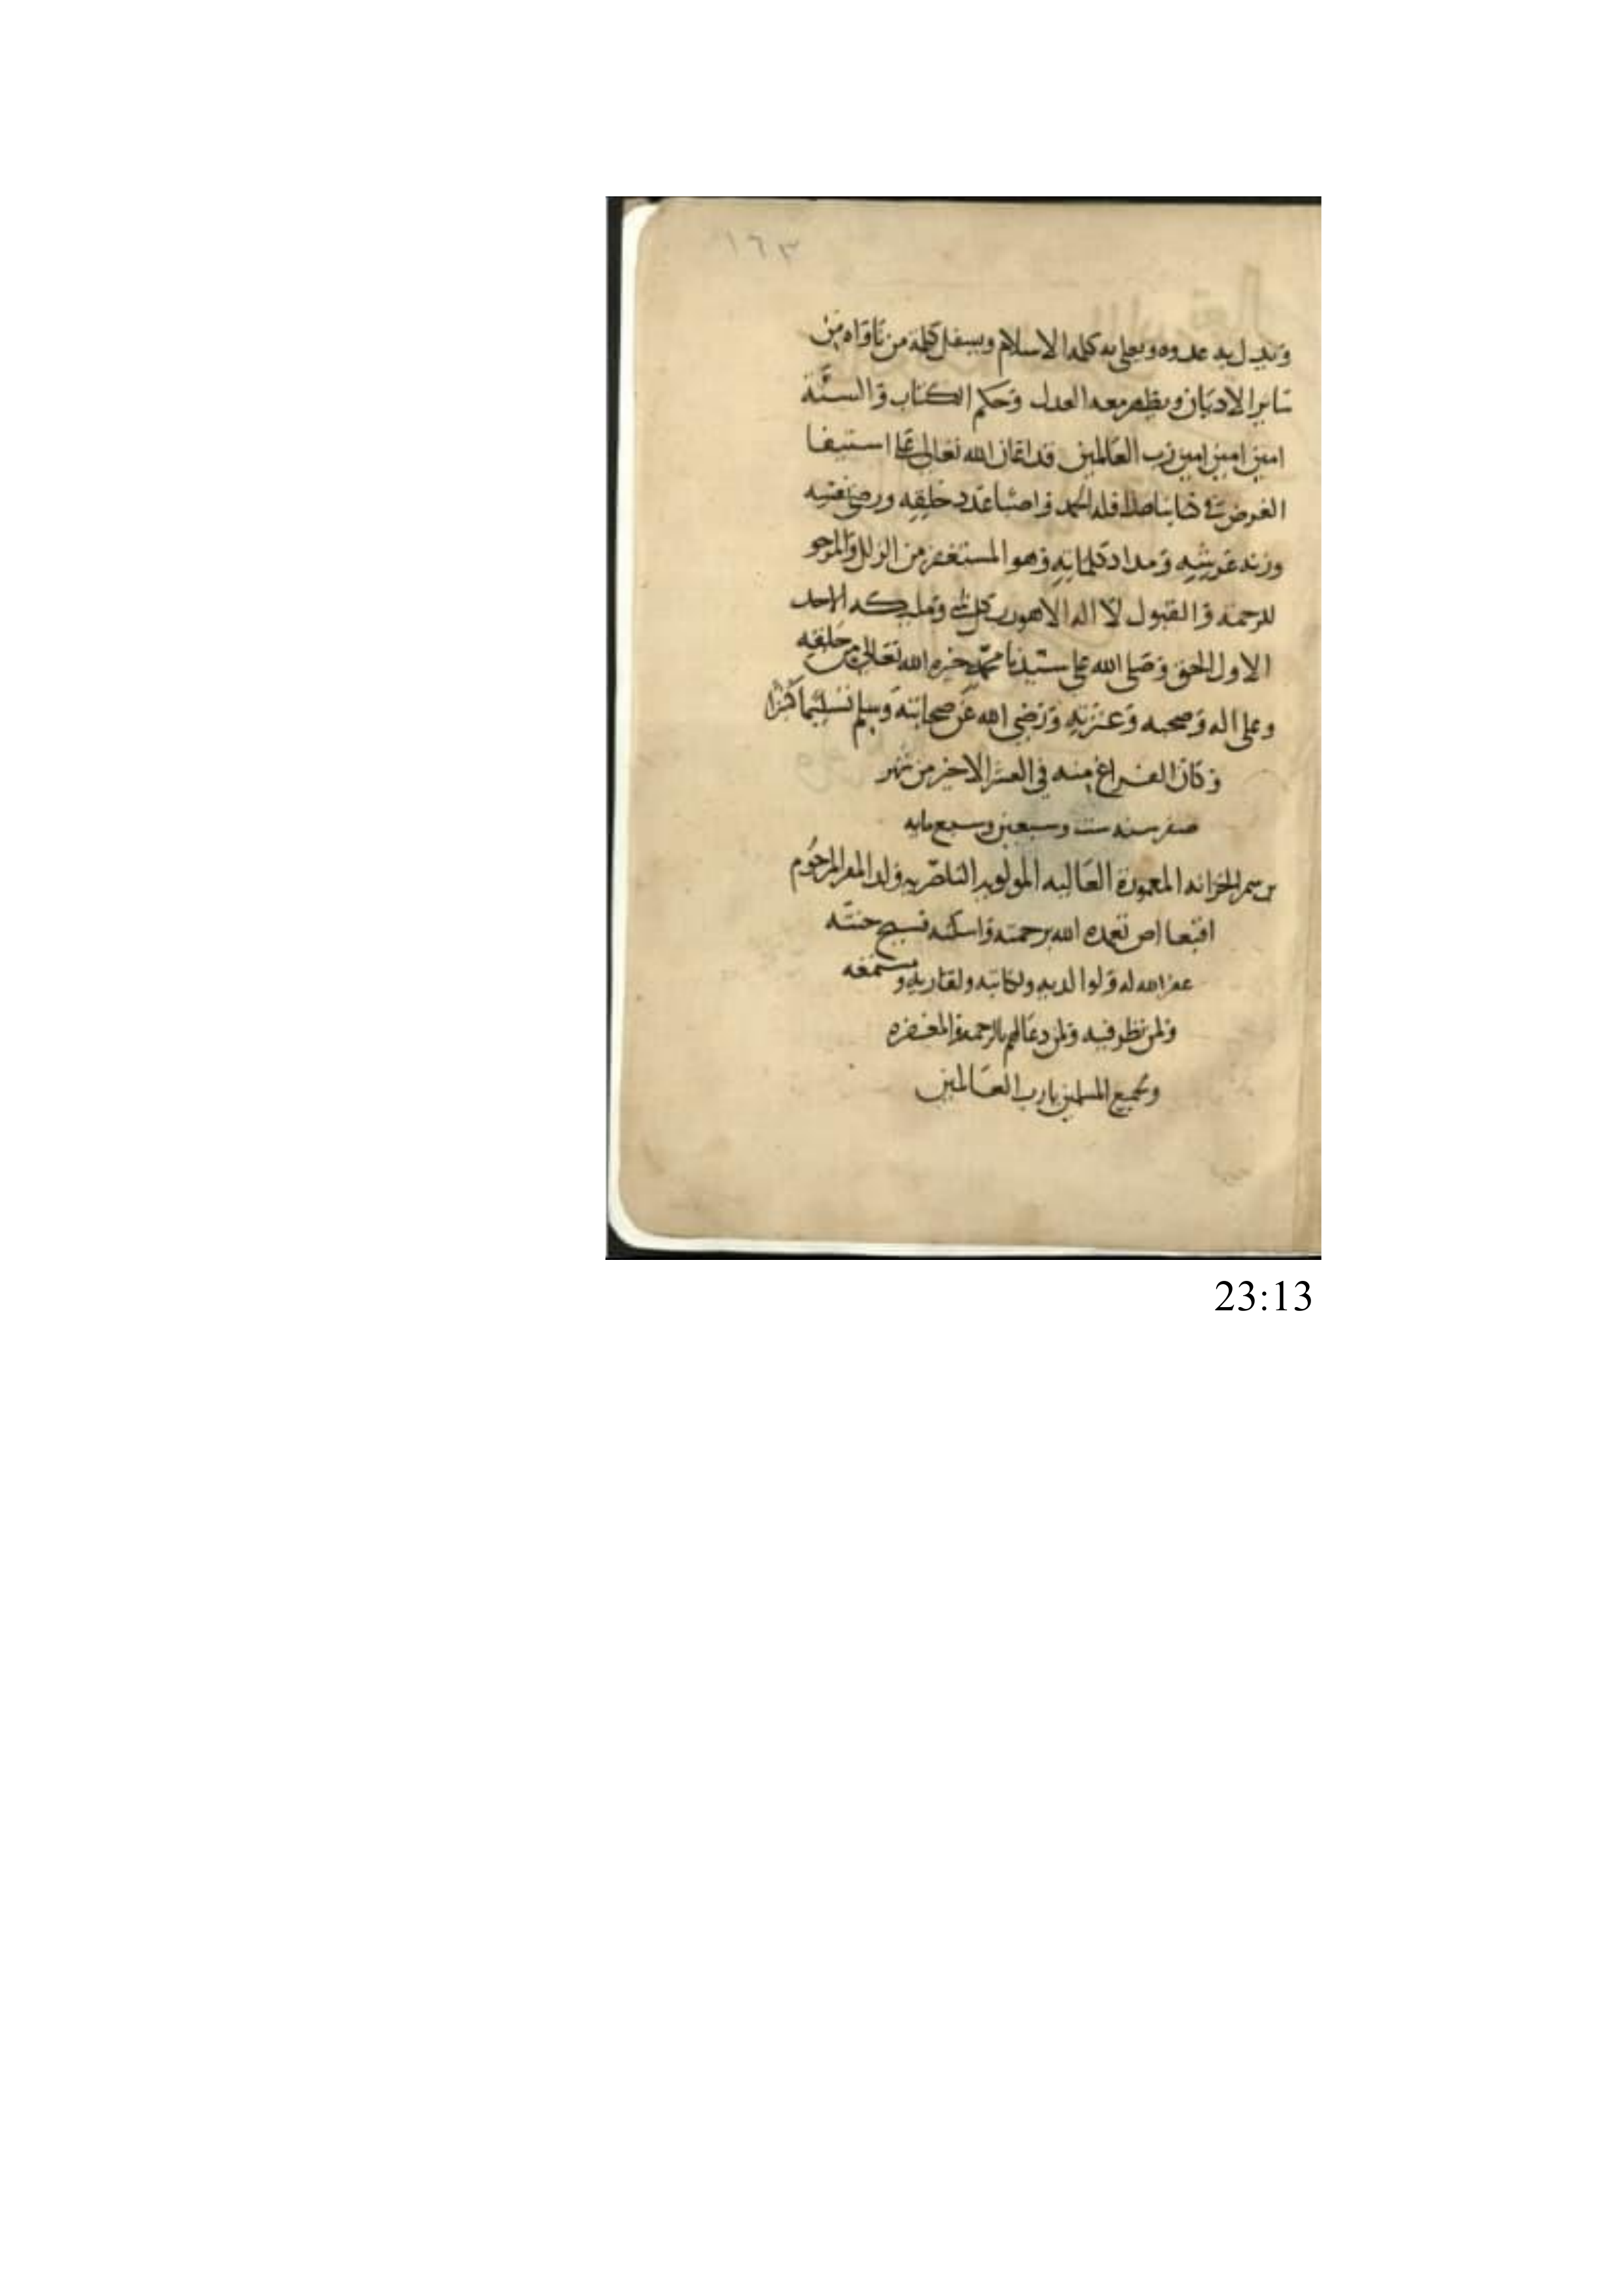 ١٦٣
ويذل به عدوه ويعلى به كلمه الاسلام ويسفل كلمة من ناواه من
ساير الاديان ويظهر معه العدل وحكم الكتاب والسنة
امين امين امين رب العالمين قد اعان الله تعالى على استيفا
الغرض في كتابنا هذا فله الحمد واصبا عدد خلقه ورضى نفسه
وزنه عرشه ومداد كلماته وهو المستغفر من الزلل والمرجو
للرحمه والقبول لا اله الا هو رب كل شى ومليكه الاحد
الاول الحق وصلى الله على سيدنا محمد خيره الله تعالى من خلقه
وعلى اله وصحبه وعترته ورضى الله عن صحابته وسلم تسليما كثيرا
وكان الفراغ منه في العشر الاخير من شهر
صفر سنه ست وسبعين وسبع مايه
برسم الخزانه المعمورة العاليه المولويه الناصريه ولد المقر المرحوم
اقبغا اص تغمده الله برحمته واسكنه فسيح جنته
غفر الله له ولوالديه ولكاتبه ولقاريه ومستمعه
ولمن نظر فيه ولمن دعا لهم بالرحمه والمغفره
ولجميع المسلمين يا رب العالمين
23:13